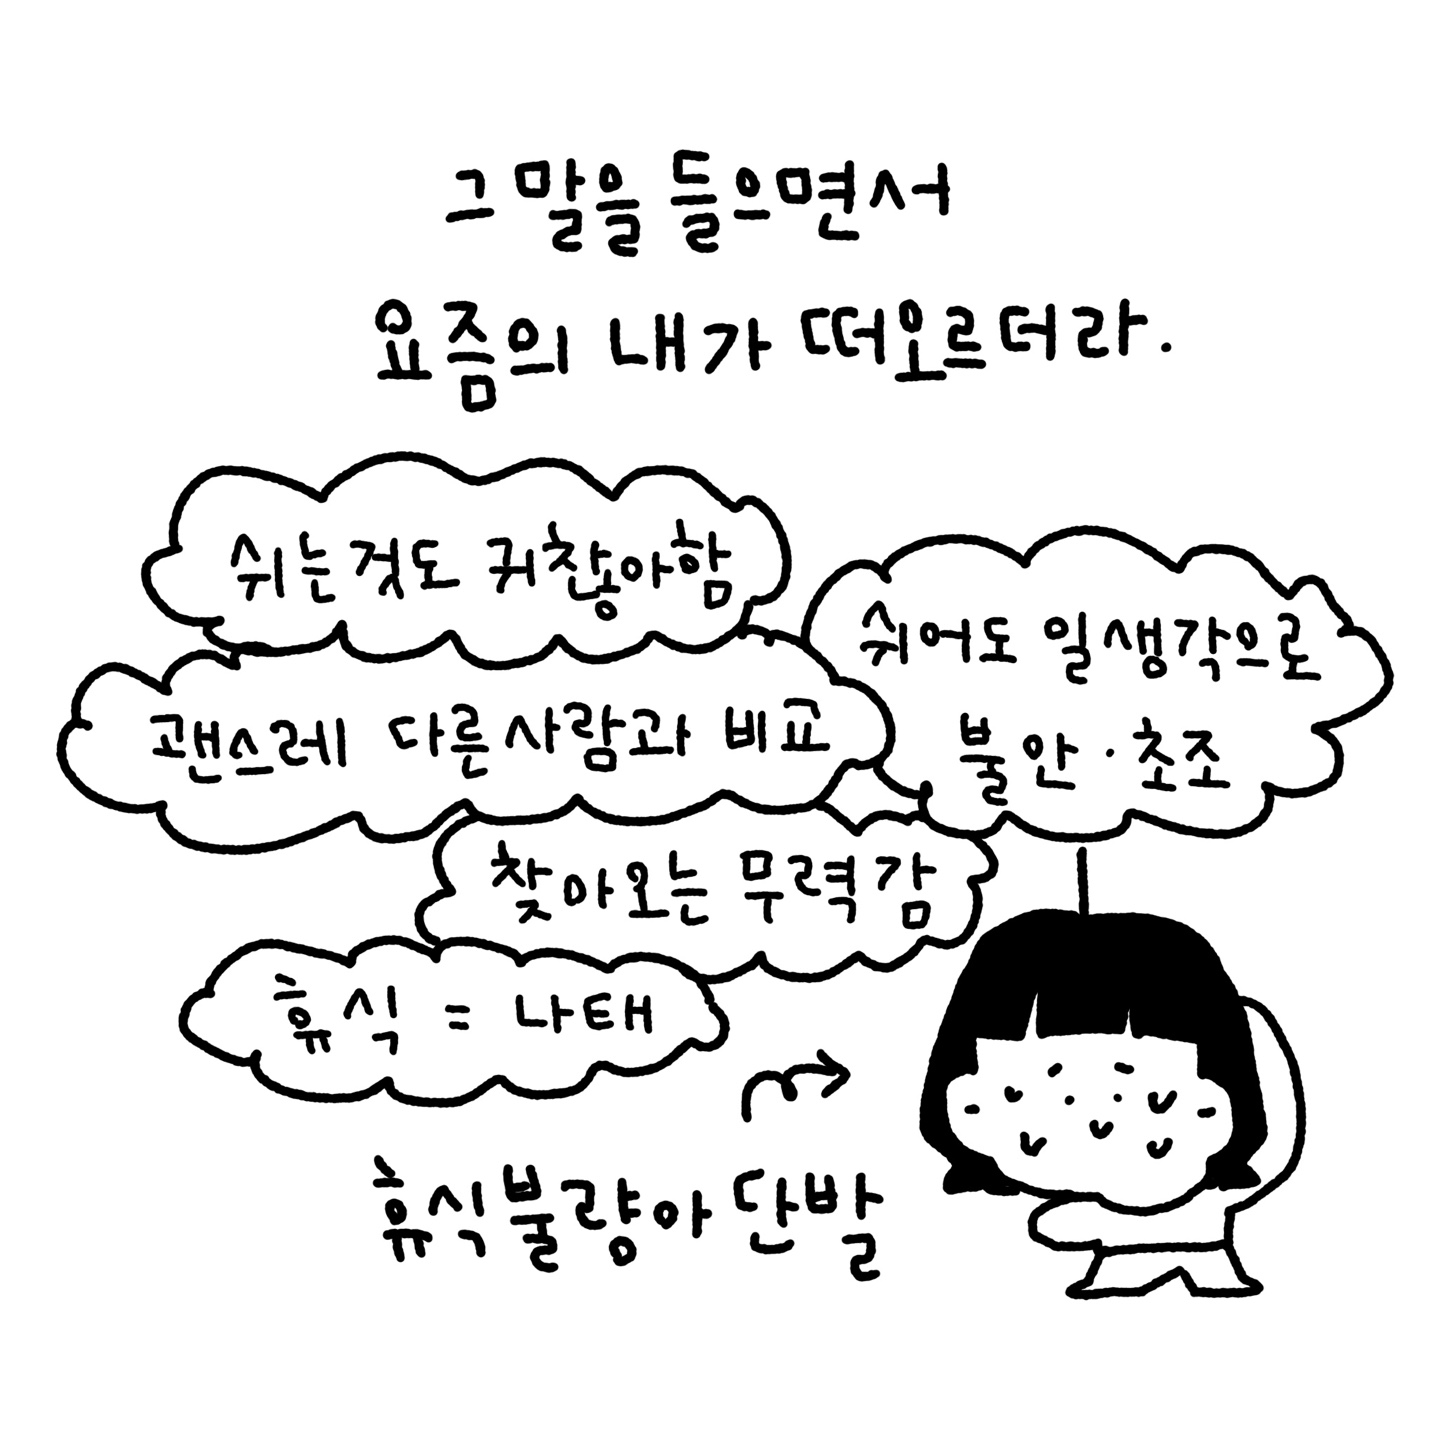 그 말을 들으면서
요즘의 내가 떠오르더라.
쉬는것도 귀찮아함
괜스레 다른사람과 비교
쉬어도 일생각으로
불안·초조
찾아오는 무력감
휴식 = 나태
휴식불량아 단발